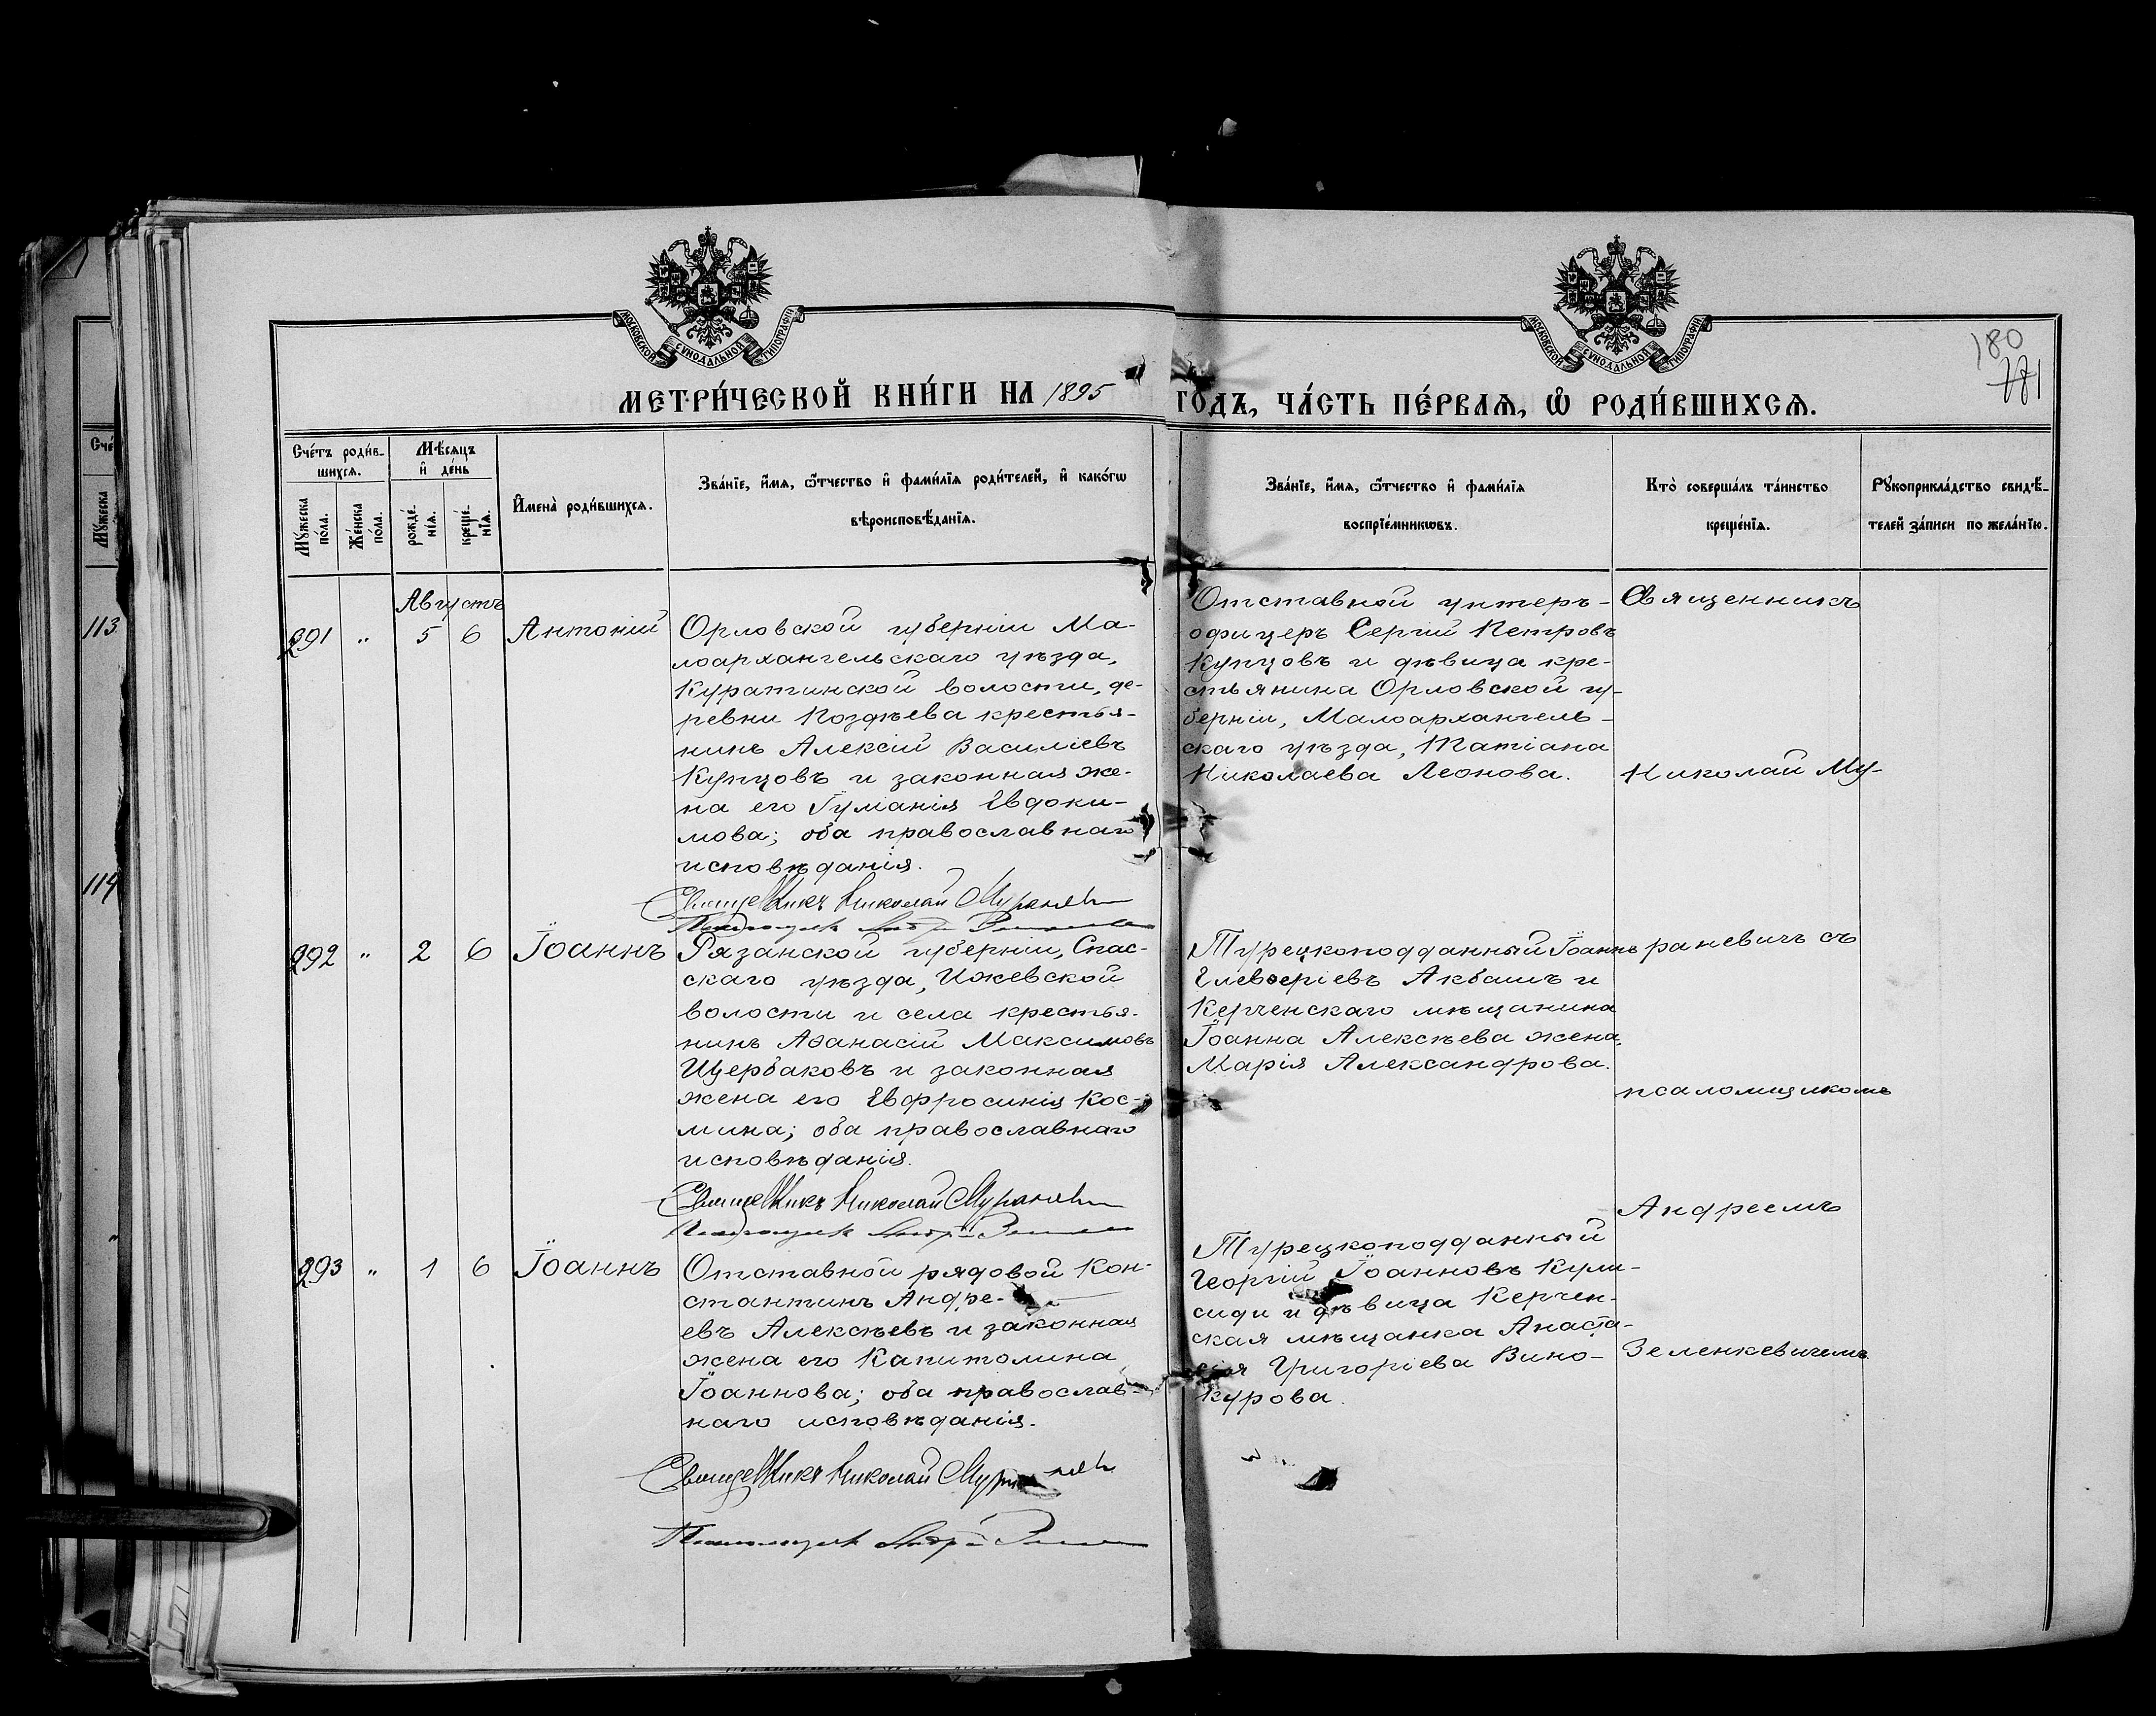 МОСКОВСКОЙ СѴНОДАЛЬНОЙ ТИПОГРАФІИ
МОСКОВСКОЙ СѴНОДАЛЬНОЙ ТИПОГРАФІИ
180
МЕТРИ́ЧЕСКОЙ КНИ́ГИ НА 1895 ГО́ДЪ, ЧА́СТЬ ПЕ́РВАѦ, Ѽ РОДИ́ВШИХСѦ.
Сче́тъ роди́в-
шихсѧ.
Мꙋ́жеска
по́ла.
Же́нска
по́ла.
Мѣ́сѧцъ
и҆ де́нь
рожде́-
нїѧ.
креще́-
нїѧ.
И҆мена̀ роди́вшихсѧ.
Зва́нїе, и҆́мѧ, ѻ҆́тчество и҆ фами́лїѧ роди́телей, и҆ како́гѡ
вѣроисповѣ́данїѧ.
Зва́нїе, и҆́мѧ, ѻ҆́тчество и҆ фами́лїѧ
воспрїе́мникѡвъ.
Кто̀ соверша́лъ та́инство
креще́нїѧ.
Рꙋкоприкла́дство свидѣ́-
телей за́писи по жела́нїю.
113
114
Августъ
291 " 5 6 Антоній
Орловской губерніи Ма-
лоархангельскаго уѣзда,
Куратинской волости, де-
ревни Поздѣева крестья-
нинъ Алексій Василіевъ
Купцовъ и законная же-
на его Іуліанія Евдоки-
мова; оба православнаго
исповѣданія.
Священникъ Николай Мураневич
Отставной унтеръ-
офицеръ Сергій Петровъ
Купцовъ и дѣвица кре-
стьянина Орловской гу-
берніи, Малоархангель-
скаго уѣзда, Татіана
Николаева Леонова.
Священникъ
Николай Му-
292 " 2 6 Іоаннъ
Рязанской губерніи, Спас-
скаго уѣзда, Ижевской
волости и села крестья-
нинъ Аѳанасій Максимовъ
Щербаковъ и законная
жена его Евфросинія Кос-
мина; оба православнаго
исповѣданія.
Священникъ Николай Мураневич
Турецкоподданный Іоаннъ
Елевѳеріевъ Акбашъ и
Керченскаго мѣщанина
Іоанна Алексѣева жена,
Марія Александрова.
раневичъ съ
псаломщикомъ
Андреемъ
293 " 1 6 Іоаннъ
Отставной рядовой Кон-
стантинъ Андре-
евъ Алексѣевъ и законная
жена его Капитолина
Іоаннова; оба православ-
наго исповѣданія.
Священникъ Николай
Турецкоподданный
Георгій Іоанновъ
и дѣвица Керчен-
ская мѣщанка Анаста-
сія Григоріева Вино-
курова.
Зеленкевичемъ